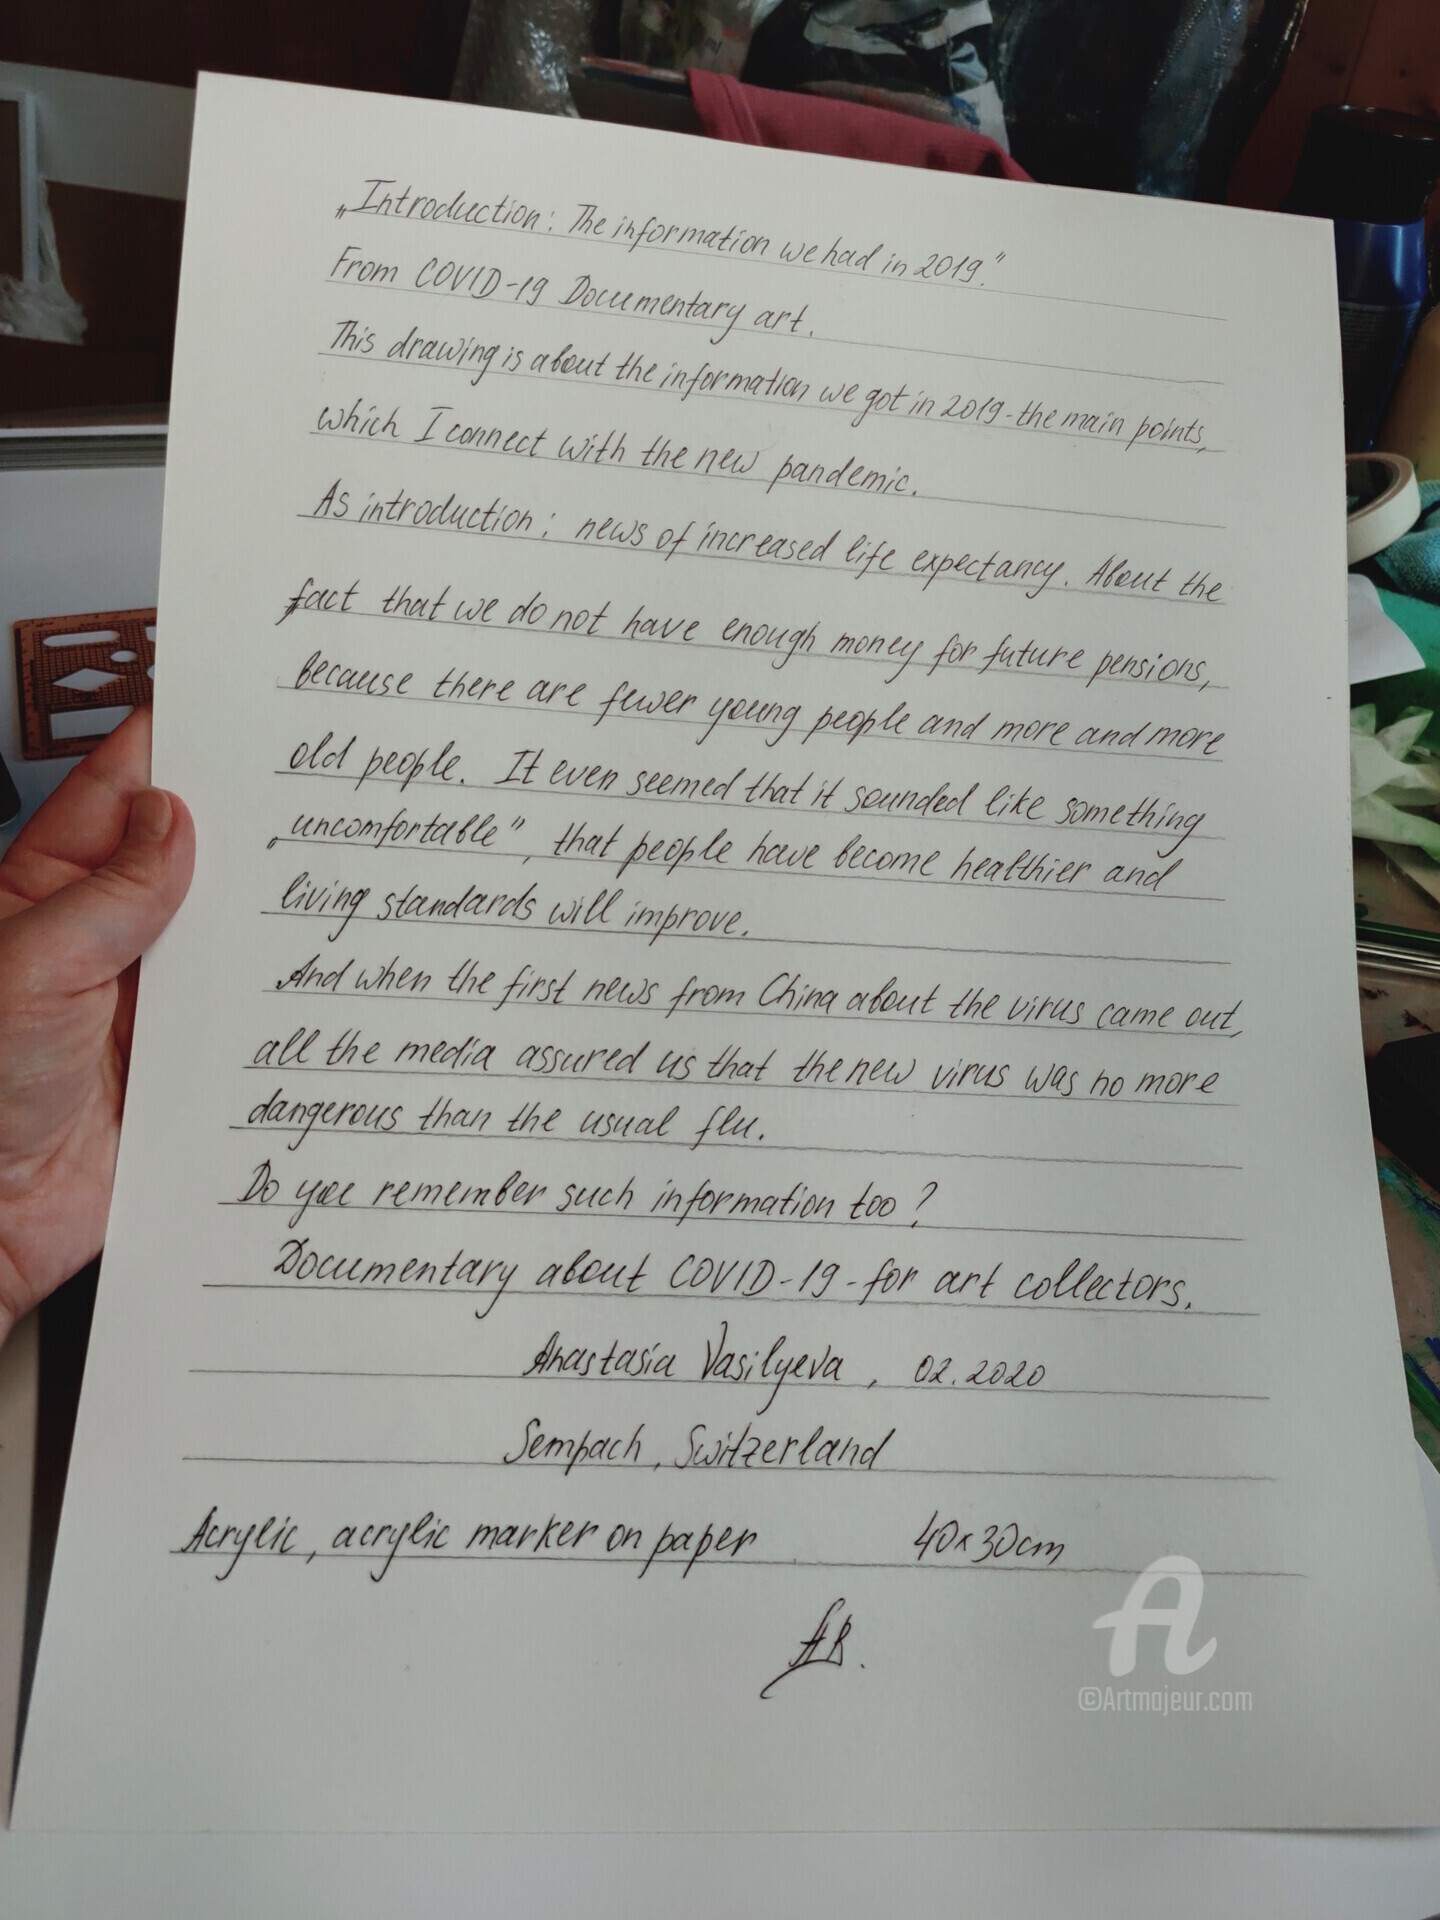 „Introduction: The information we had in 2019."
From COVID-19 Documentary art.
This drawing is about the information we got in 2019 - the main points,
which I connect with the new pandemic.
As introduction: news of increased life expectancy. About the
fact that we do not have enough money for future pensions,
because there are fewer young people and more and more
old people. It even seemed that it sounded like something
„uncomfortable", that people have become healthier and
living standards will improve.
And when the first news from China about the virus came out,
all the media assured us that the new virus was no more
dangerous than the usual flu.
Do you remember such information too?
Documentary about COVID-19 - for art collectors.
Anastasia Vasilyeva, 02.2020
Sempach, Switzerland
Acrylic, acrylic marker on paper 40x30cm
AB.
A
©Artmajeur.com